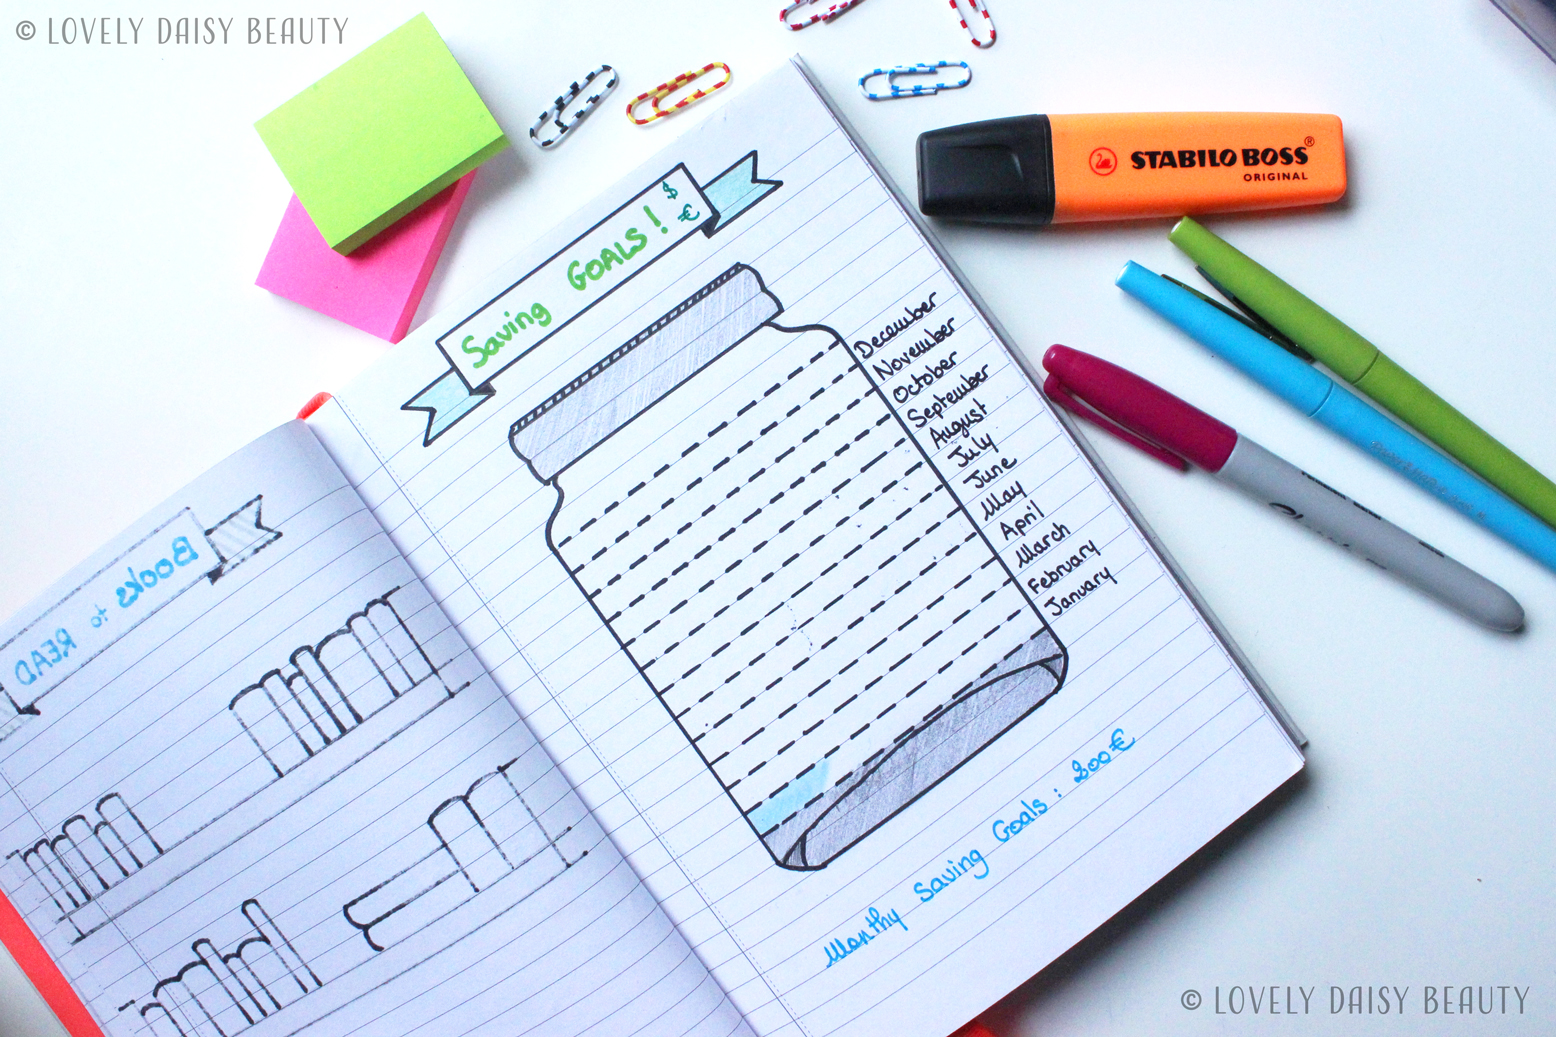 © LOVELY DAISY BEAUTY
STABILO BOSS®
ORIGINAL
Saving GOALS! $
€
December
November
October
September
August
July
June
May
April
March
February
January
Books to READ
Monthy Saving Goals : 200€
© LOVELY DAISY BEAUTY